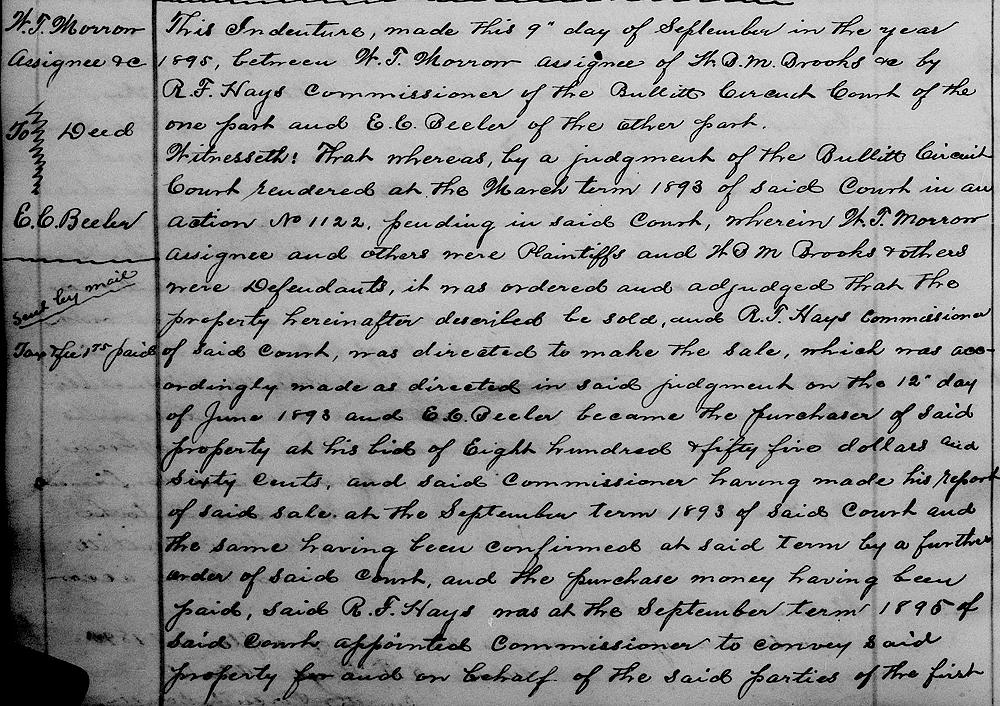 W.T. Morrow
Assignee &c
To Deed
E.C. Beeler
Sent by mail
Tax Fee 1.75 paid
This Indenture, made this 9" day of September in the year
1895, between W.T. Morrow assignee of W.D.M. Brooks &c by
R.F. Hays Commissioner of the Bullitt Circuit Court of the
one part and E.C. Beeler of the other part.
Witnesseth: That whereas, by a judgment of the Bullitt Circuit
Court rendered at the March term 1893 of said Court in an
action No 1122, pending in said Court, wherein W.T. Morrow
assignee and others were Plaintiffs and W D M Brooks & others
were Defendants, it was ordered and adjudged that the
property hereinafter described be sold, and R.F. Hays Commissioner
of said Court, was directed to make the sale, which was acc-
ordingly made as directed in said judgment on the 12" day
of June 1893 and E.C. Beeler became the purchaser of said
property at his bid of Eight hundred & fifty five dollars and
Sixty Cents, and said Commissioner having made his report
of said sale at the September term 1893 of said Court and
the same having been confirmed at said term by a further
order of said Court, and the purchase money having been
paid, said R.F. Hays was at the September term 1895 of
said Court appointed Commissioner to convey said
property for and on behalf of the said parties of the first